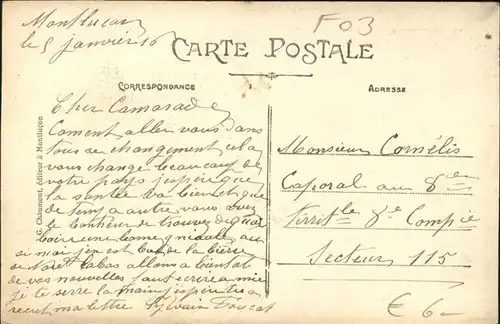 Montluçon
le 5 janvier 16
F03
CARTE POSTALE
CORRESPONDANCE
ADRESSE
G. Chaumont, éditeur à Montluçon
Cher Camarade
Coment aller vous dans
tous se changement cela
vous change beaucoup de
votre pays j'espère que
la santée va bien et que
de temp a autre vous avez
le bonheur de trouver de quoi
boire une bone gniaule au
si moi j'en est but de la bière
se Noël labas allons a bientot
de vos nouvelles faut écrire a mie
je te serre la main j'espère tu a
recut ma lettre Sylvain
Monsieur Cornélis
Caporal au 8ème
Territ^le 8e Compie
Secteur 115
€ 6-